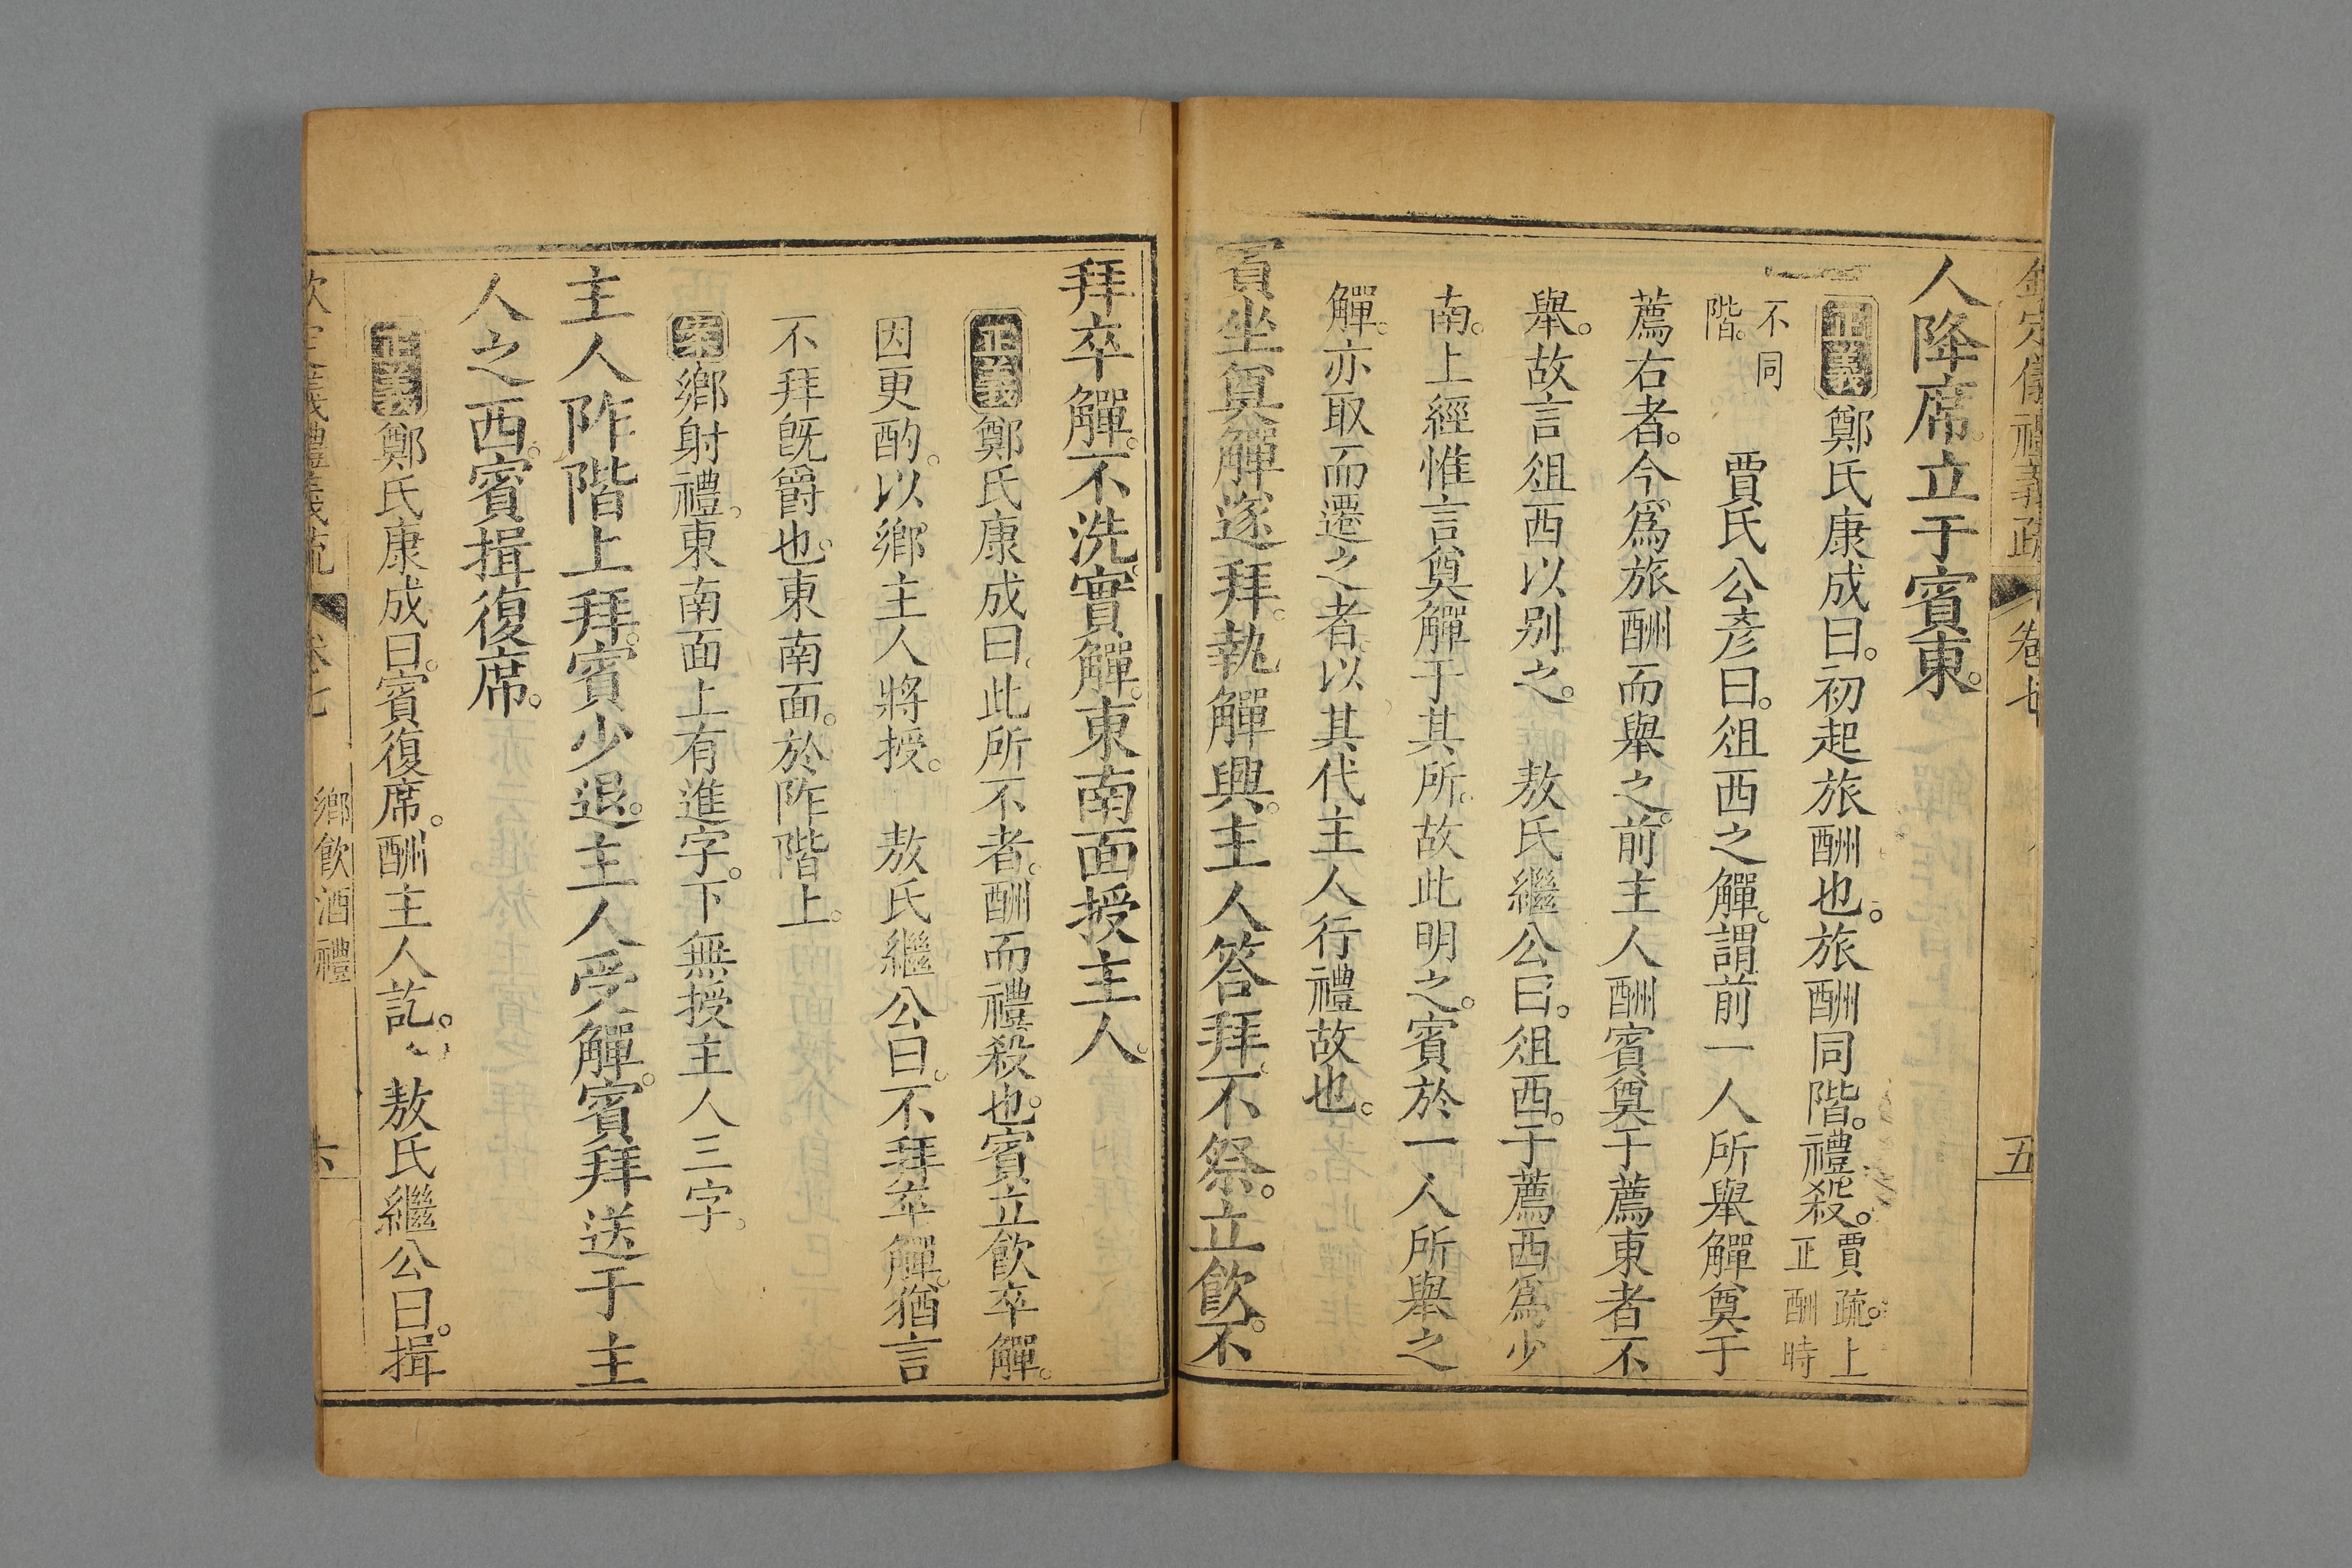 欽定儀禮義疏 卷七 五
人降席。立于賓東。
正義鄭氏康成曰。初起旅酬也。旅酬同階。禮殺。賈疏。上
正酬時
不同
階。賈氏公彥曰。俎西之觶。謂前一人所舉觶奠于
薦右者。今爲旅酬而舉之。前主人酬賓奠于薦東者不
舉。故言俎西以别之。 敖氏繼公曰。俎西。于薦西爲少
南。上經惟言奠觶于其所。故此明之。賓於一人所舉之
觶。亦取而遷之者。以其代主人行禮故也。
賓坐奠觶遂拜。執觶興。主人答拜。不祭。立飲。不
拜卒觶。不洗。實觶。東南面授主人。
正義鄭氏康成曰。此所不者。酬而禮殺也。賓立飲卒觶。
因更酌。以鄉主人將授。 敖氏繼公曰。不拜卒觶。猶言
不拜旣爵也。東南面。於阼階上。
案鄉射禮。東南面上有進字。下無授主人三字。
主人阼階上拜。賓少退。主人受觶。賓拜送于主
人之西。賓揖復席。
正義鄭氏康成曰。賓復席。酬主人訖。 敖氏繼公曰。揖
欽定儀禮義疏 卷七 鄉飲酒禮 六